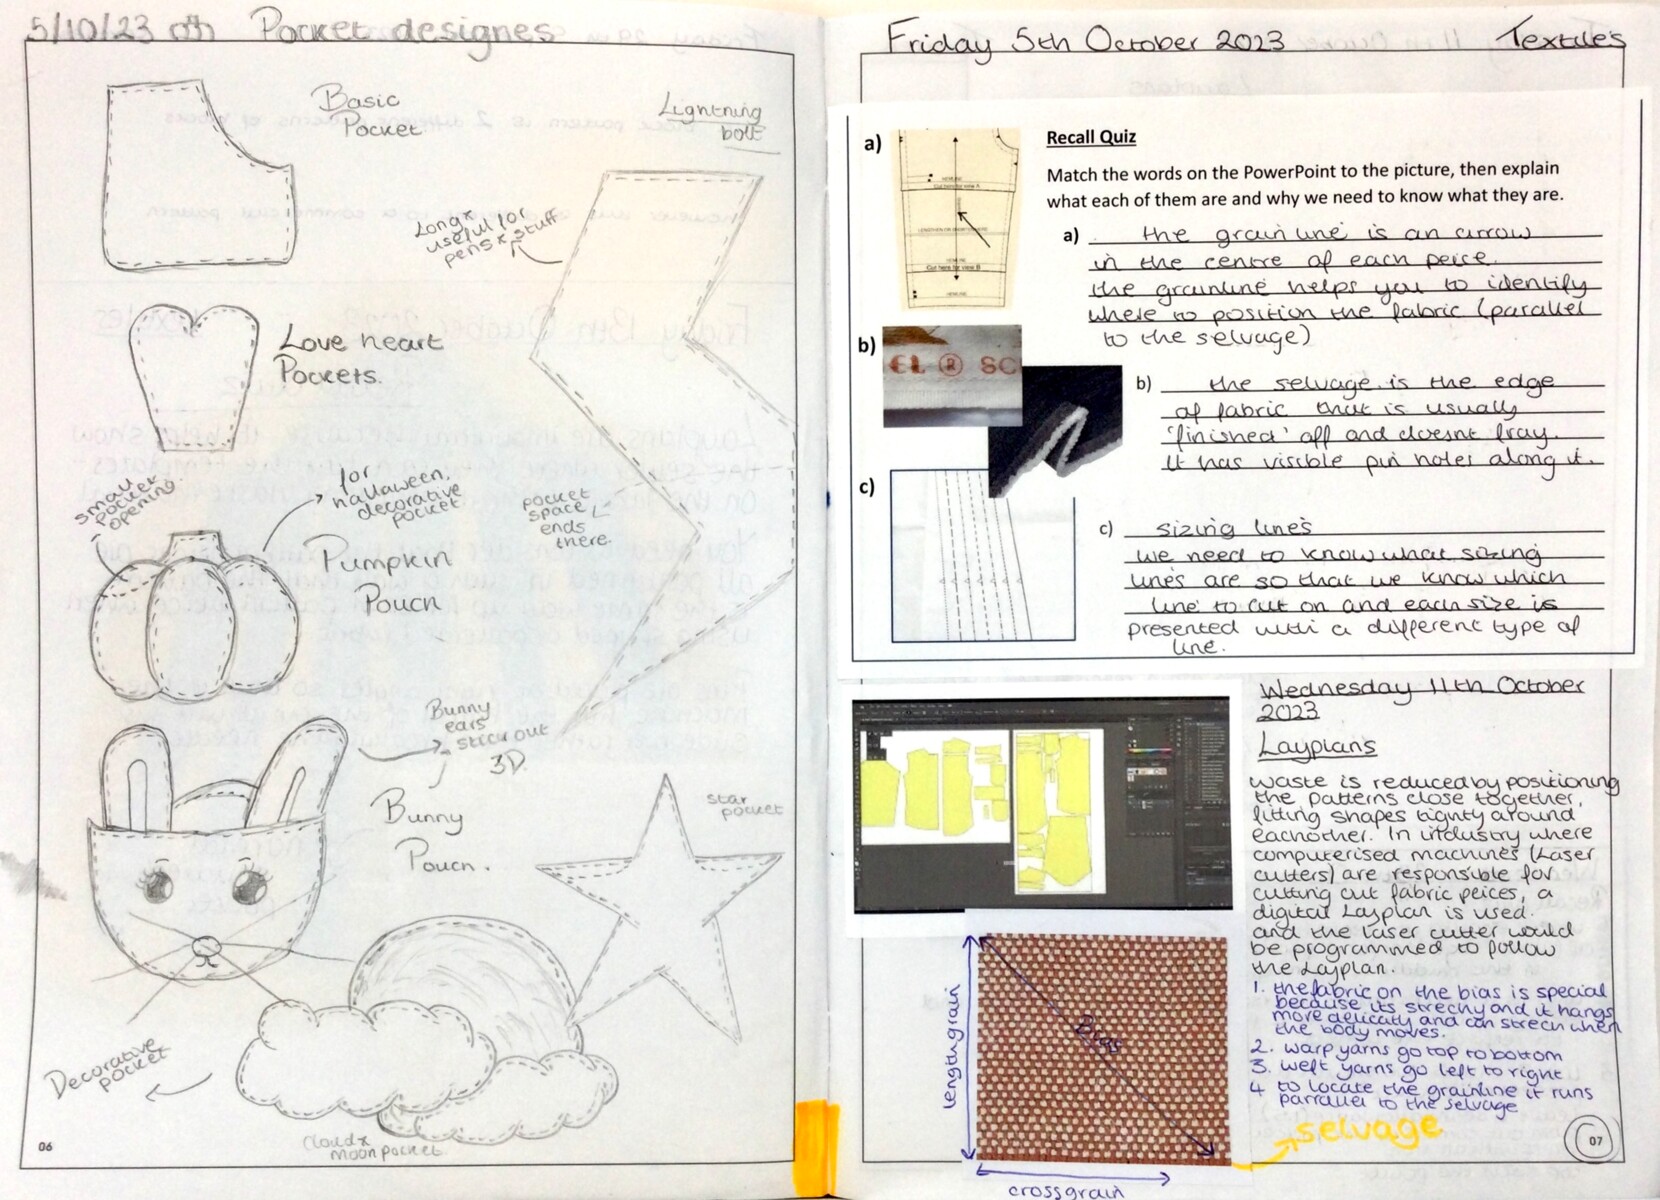 5/10/23 Pocket designes
Basic
Pocket
Lightning
bolt
Long x
useful for
pens x stuff
Love heart
Pockets.
small
pocket
opening
for
halloween,
decorative
pocket
pocket
space
ends
there
Pumpkin
Poucn
Bunny
ears
stick out
3D.
Bunny
Poucn.
star
pocket
Decorative
pocket
cloud x
moon pocket.
06
Friday 5th October 2023 Textiles
Recall Quiz
Match the words on the PowerPoint to the picture, then explain
what each of them are and why we need to know what they are.
a)
Cut here for view A
Cut here for view B
HEMLINE
a) the grainline is an arrow
in the centre of each peice.
the grainline helps you to identify
where to position the fabric (parallel
to the selvage)
b)
EL ® SC
b) the selvage is the edge
of fabric that is usually
'finished' off and doesnt fray.
It has visible pin holes along it.
c)
c) sizing lines
we need to know what sizing
lines are so that we know which
line to cut on and each size is
presented with a different type of
line.
Wednesday 11th October
2023
Layplans
Waste is reduced by positioning
the patterns close together,
fitting shapes tightly around
eachother. In industry where
computerised machines (Laser
cutters) are responsible for
cutting out fabric peices, a
digital Layplan is used.
and the laser cutter would
be programmed to follow
the Layplan.
1. the fabric on the bias is special
because its strechy and it hangs
more delicatly and can strech when
the body moves.
2. warp yarns go top to bottom
3. weft yarns go left to right
4 to locate the grainline it runs
parrallel to the selvage
lengthgrain
Bias
crossgrain
selvage
07